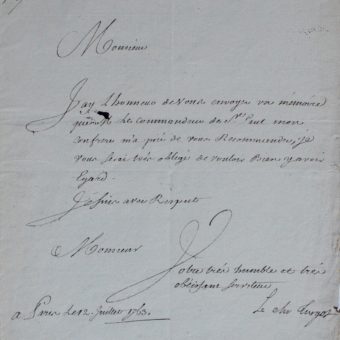 Monsieur
J'ay l'honneur de vous envoyer un mémoire
que le commandeur de St. Paul mon
confrere m'a prié de vous Recommander, je
vous serai très obligé de vouloir Bien y avoir
Egard.
Je suis avec Respect
Monsieur
Votre très humble et très
obéissant serviteur
a Paris le 12. Juillet 1763.
Le chr Turgot